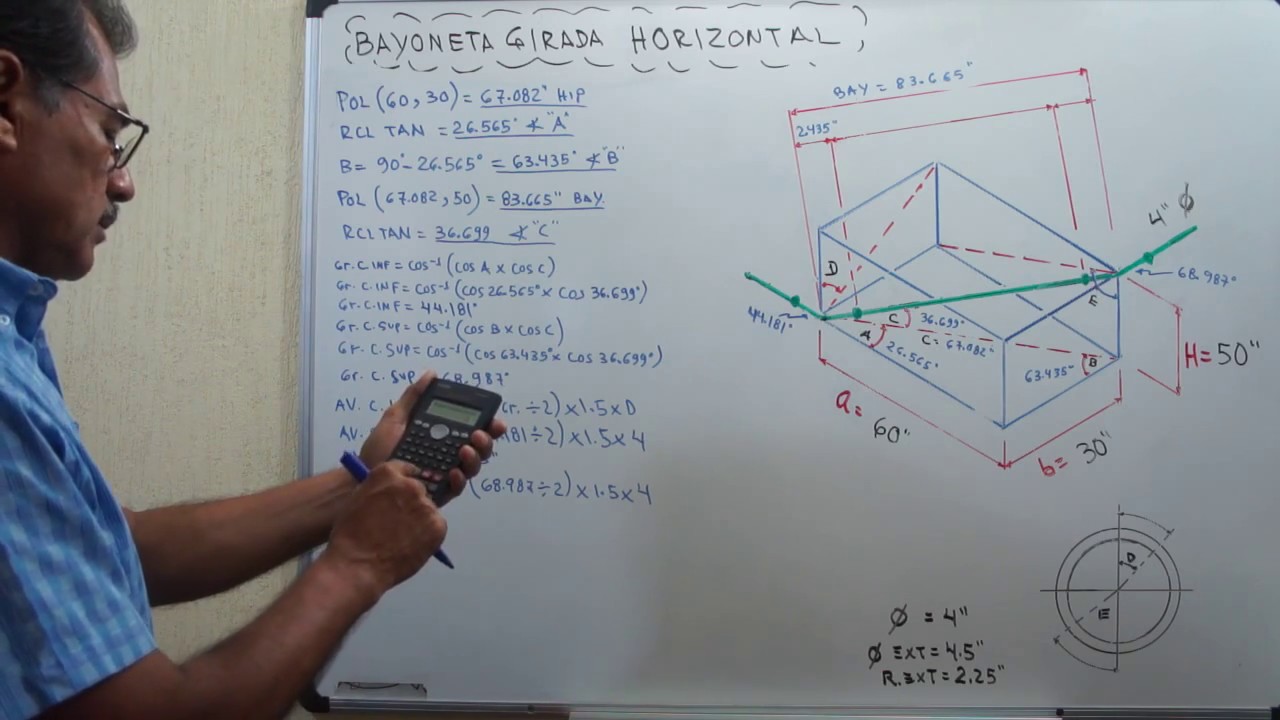 BAYONETA GIRADA HORIZONTAL
POL (60, 30) = 67.082" HIP
RCL TAN = 26.565° ∡ "A"
B = 90° - 26.565° = 63.435° ∡ "B"
POL (67.082, 50) = 83.665" BAY.
RCL TAN = 36.699 ∡ "C"
Gr. C. INF = COS⁻¹ (COS A x COS C)
Gr. C. INF = COS⁻¹ (COS 26.565° x COS 36.699°)
Gr. C. INF = 44.181°
Gr. C. SUP = COS⁻¹ (COS B x COS C)
Gr. C. SUP = COS⁻¹ (COS 63.435° x COS 36.699°)
Gr. C. SUP 68.987°
AV. C. (Gr. ÷ 2) x 1.5 x D
AV. 181 ÷ 2) x 1.5 x 4
(68.987 ÷ 2) x 1.5 x 4
BAY = 83.665"
2.435"
4" Ø
D
68.987°
E
44.181°
C 36.699°
A C = 67.082"
26.565°
63.435° B
H = 50"
a = 60"
b = 30"
D
E
Ø = 4"
Ø EXT = 4.5"
R. EXT = 2.25"